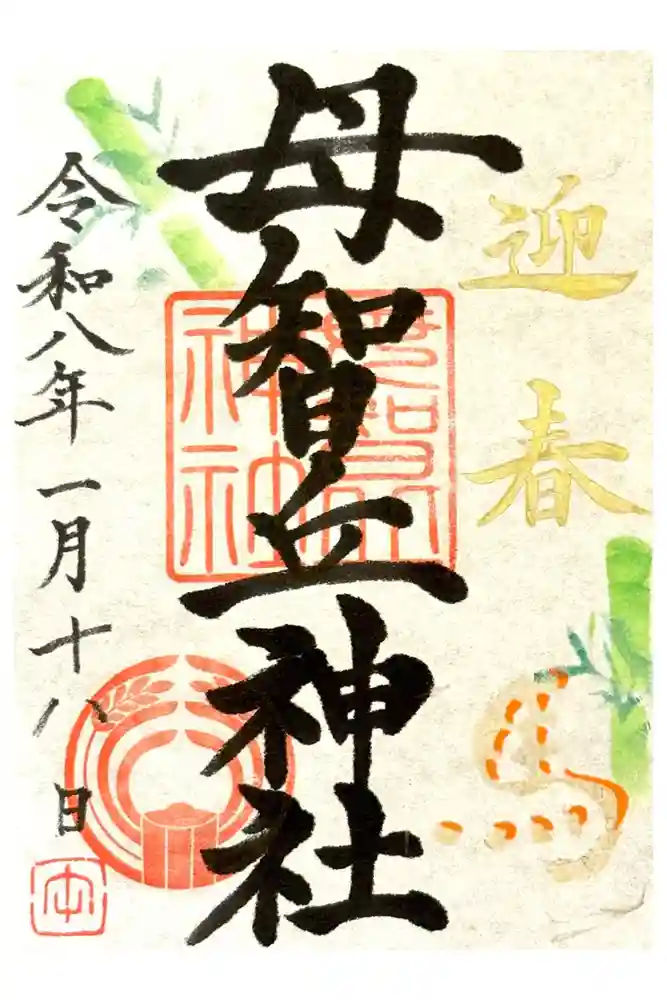 迎春
馬
母智丘神社
神社
令和八年一月十八日